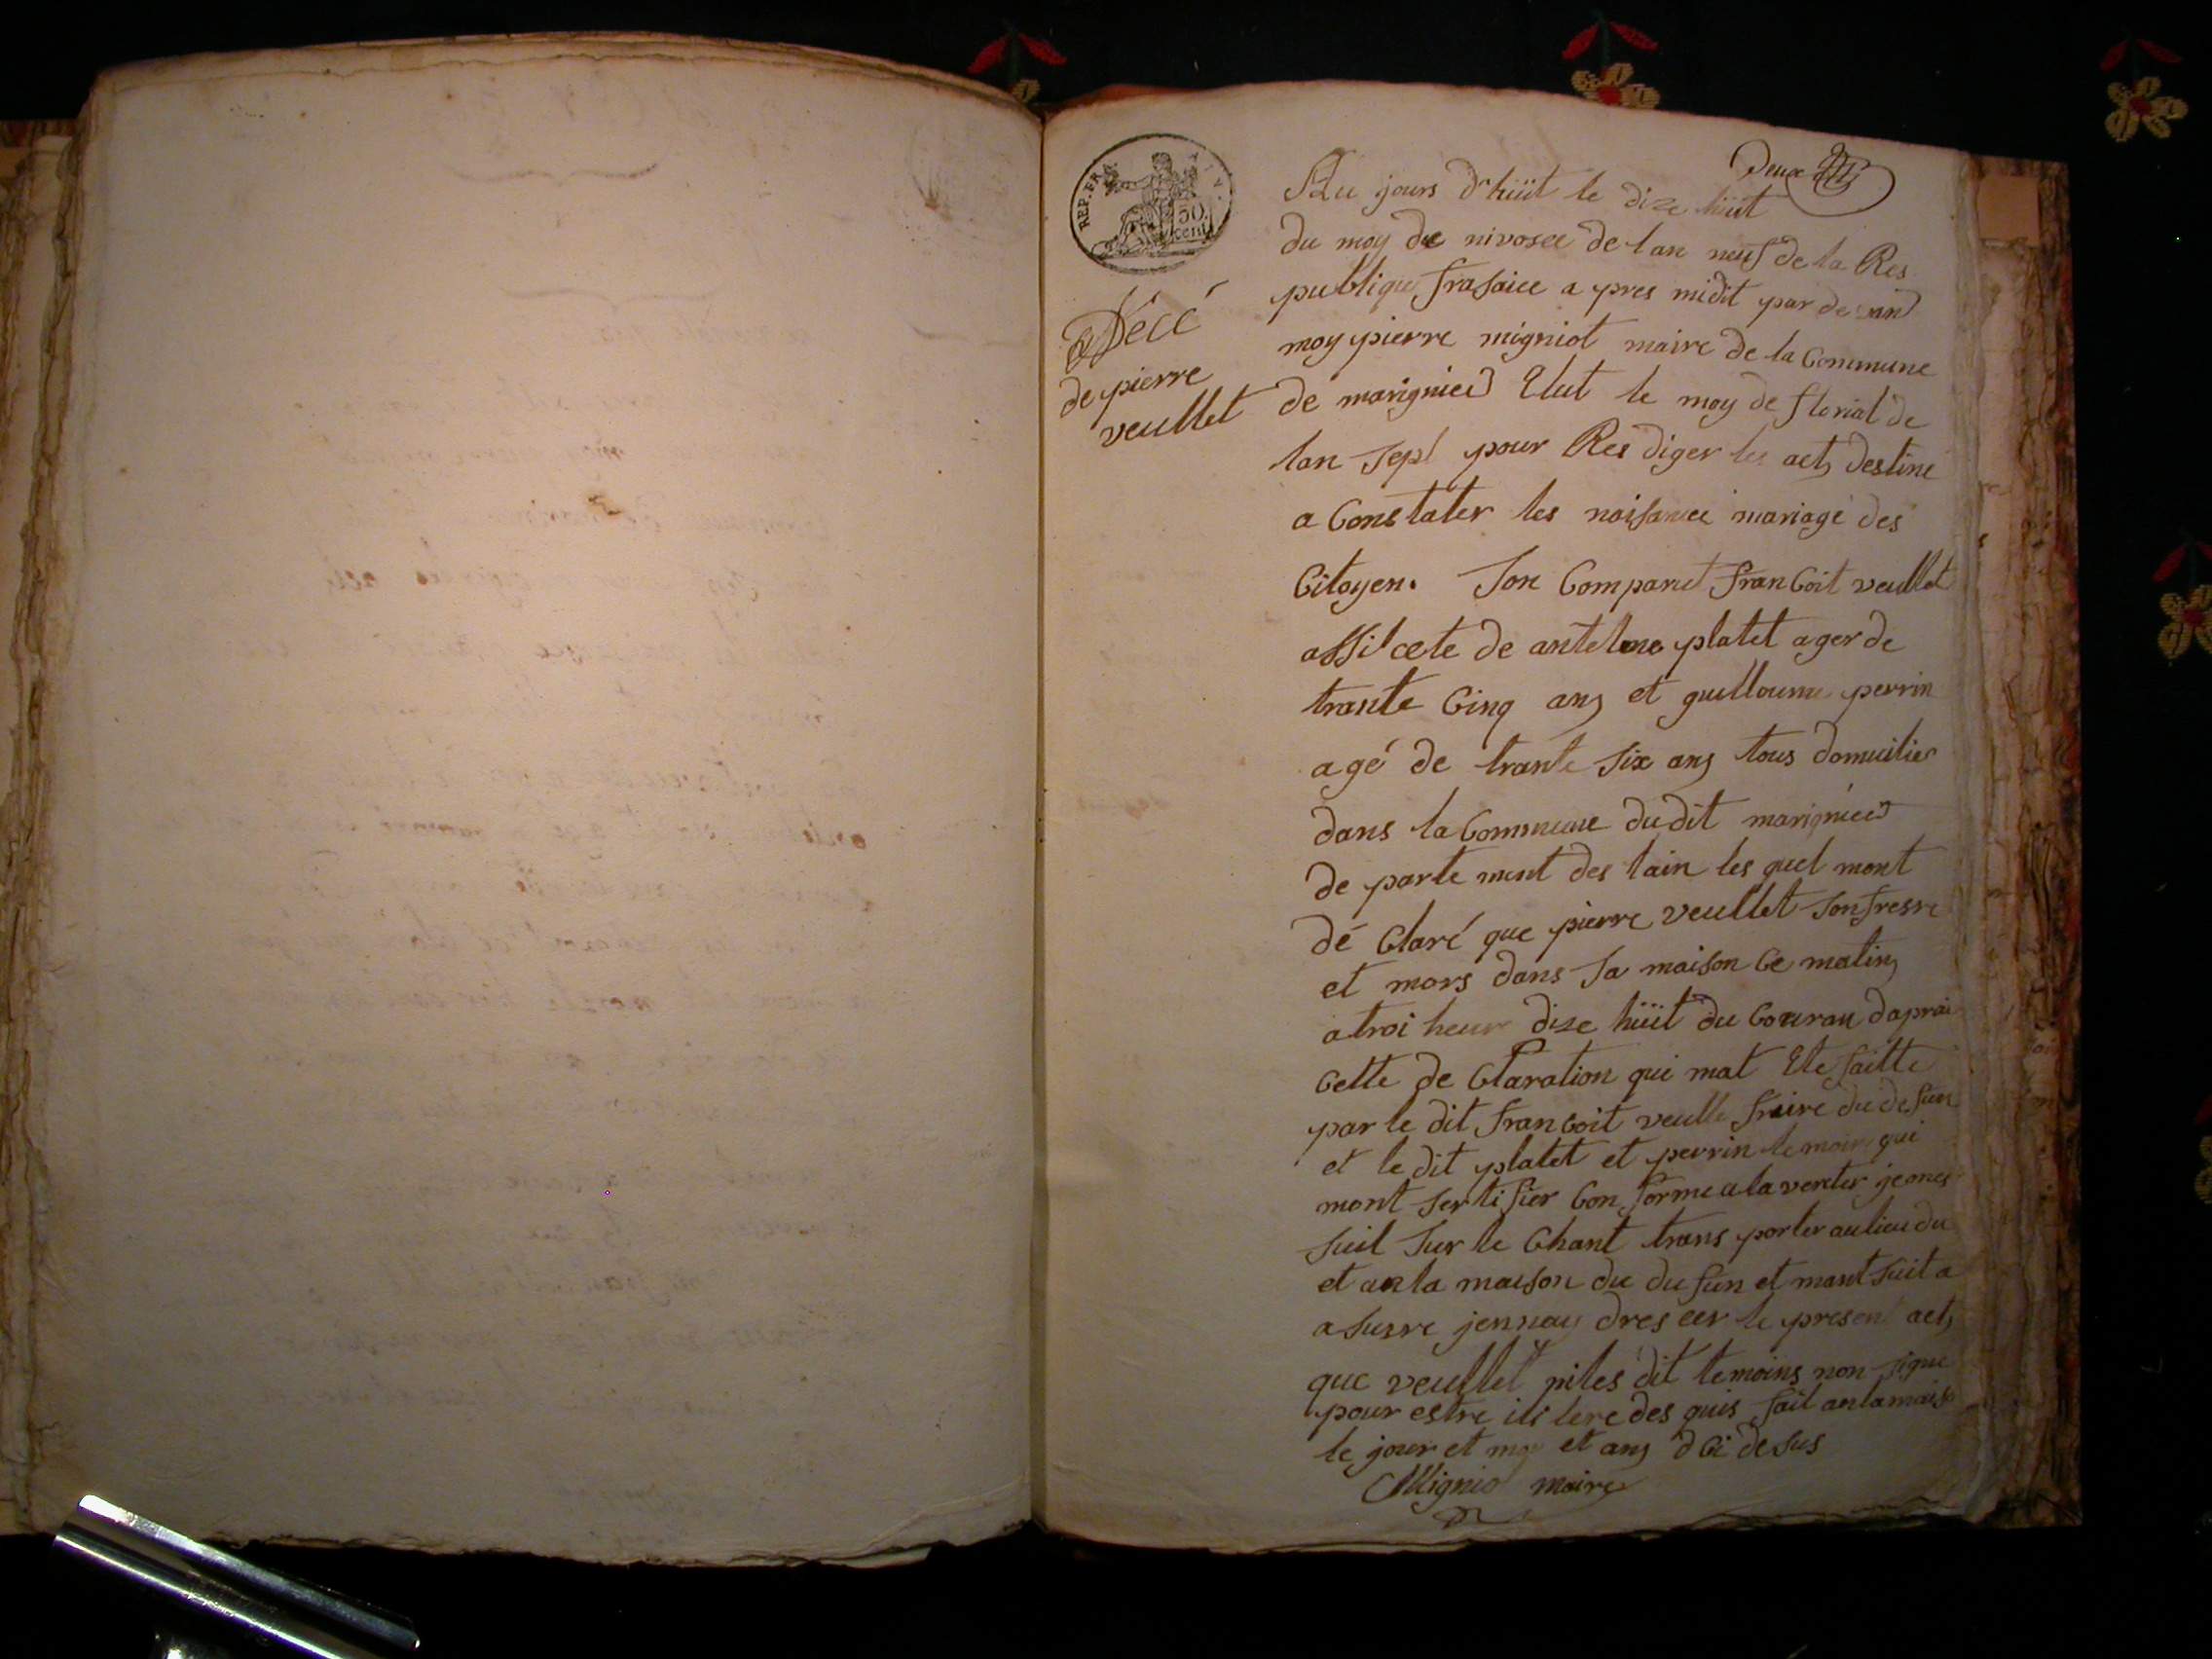 Deux
REP. FRA.
50
cent
Au jours d'huit le dize huit
du moy de nivosee de lan neuf de la Res
publique frasaice a pres midit par devan
moy pierre migniot maire de la Commune
de marignieu Elut le moy de florial de
lan sept pour Res diger les act destiné
a Constater les naisancé mariagé des
Citoyen. son Comparut franCoit veullet
assilcete de antelme platet ager de
trante Cinq ans et guilloume perrin
agé de trante six ans tous domicilier
dans la Commune du dit marignieu
de parte ment des lain les quel mont
dé Claré que pierre veullet son fresre
et mors dans sa maison Ce matin
a troi heur dize huit du Couran daprai
Cette de Claration qui mat Ete faitte
par le dit franCoit veulle fraire du defun
et le dit platet et perrin temoin qui
mont sertifier Conforme a la veriter jemes
suit sur le Chant trans porter au lieu du
et an la maison du dufun et mant suit a
a surre jennay dresser le present act
que veullet ni les dit temoins non signe
pour estre ili tere des quis fait an la mais
le jour et moy et ans d Ci desus
Mignio maire
Décé
de pierre
veullet